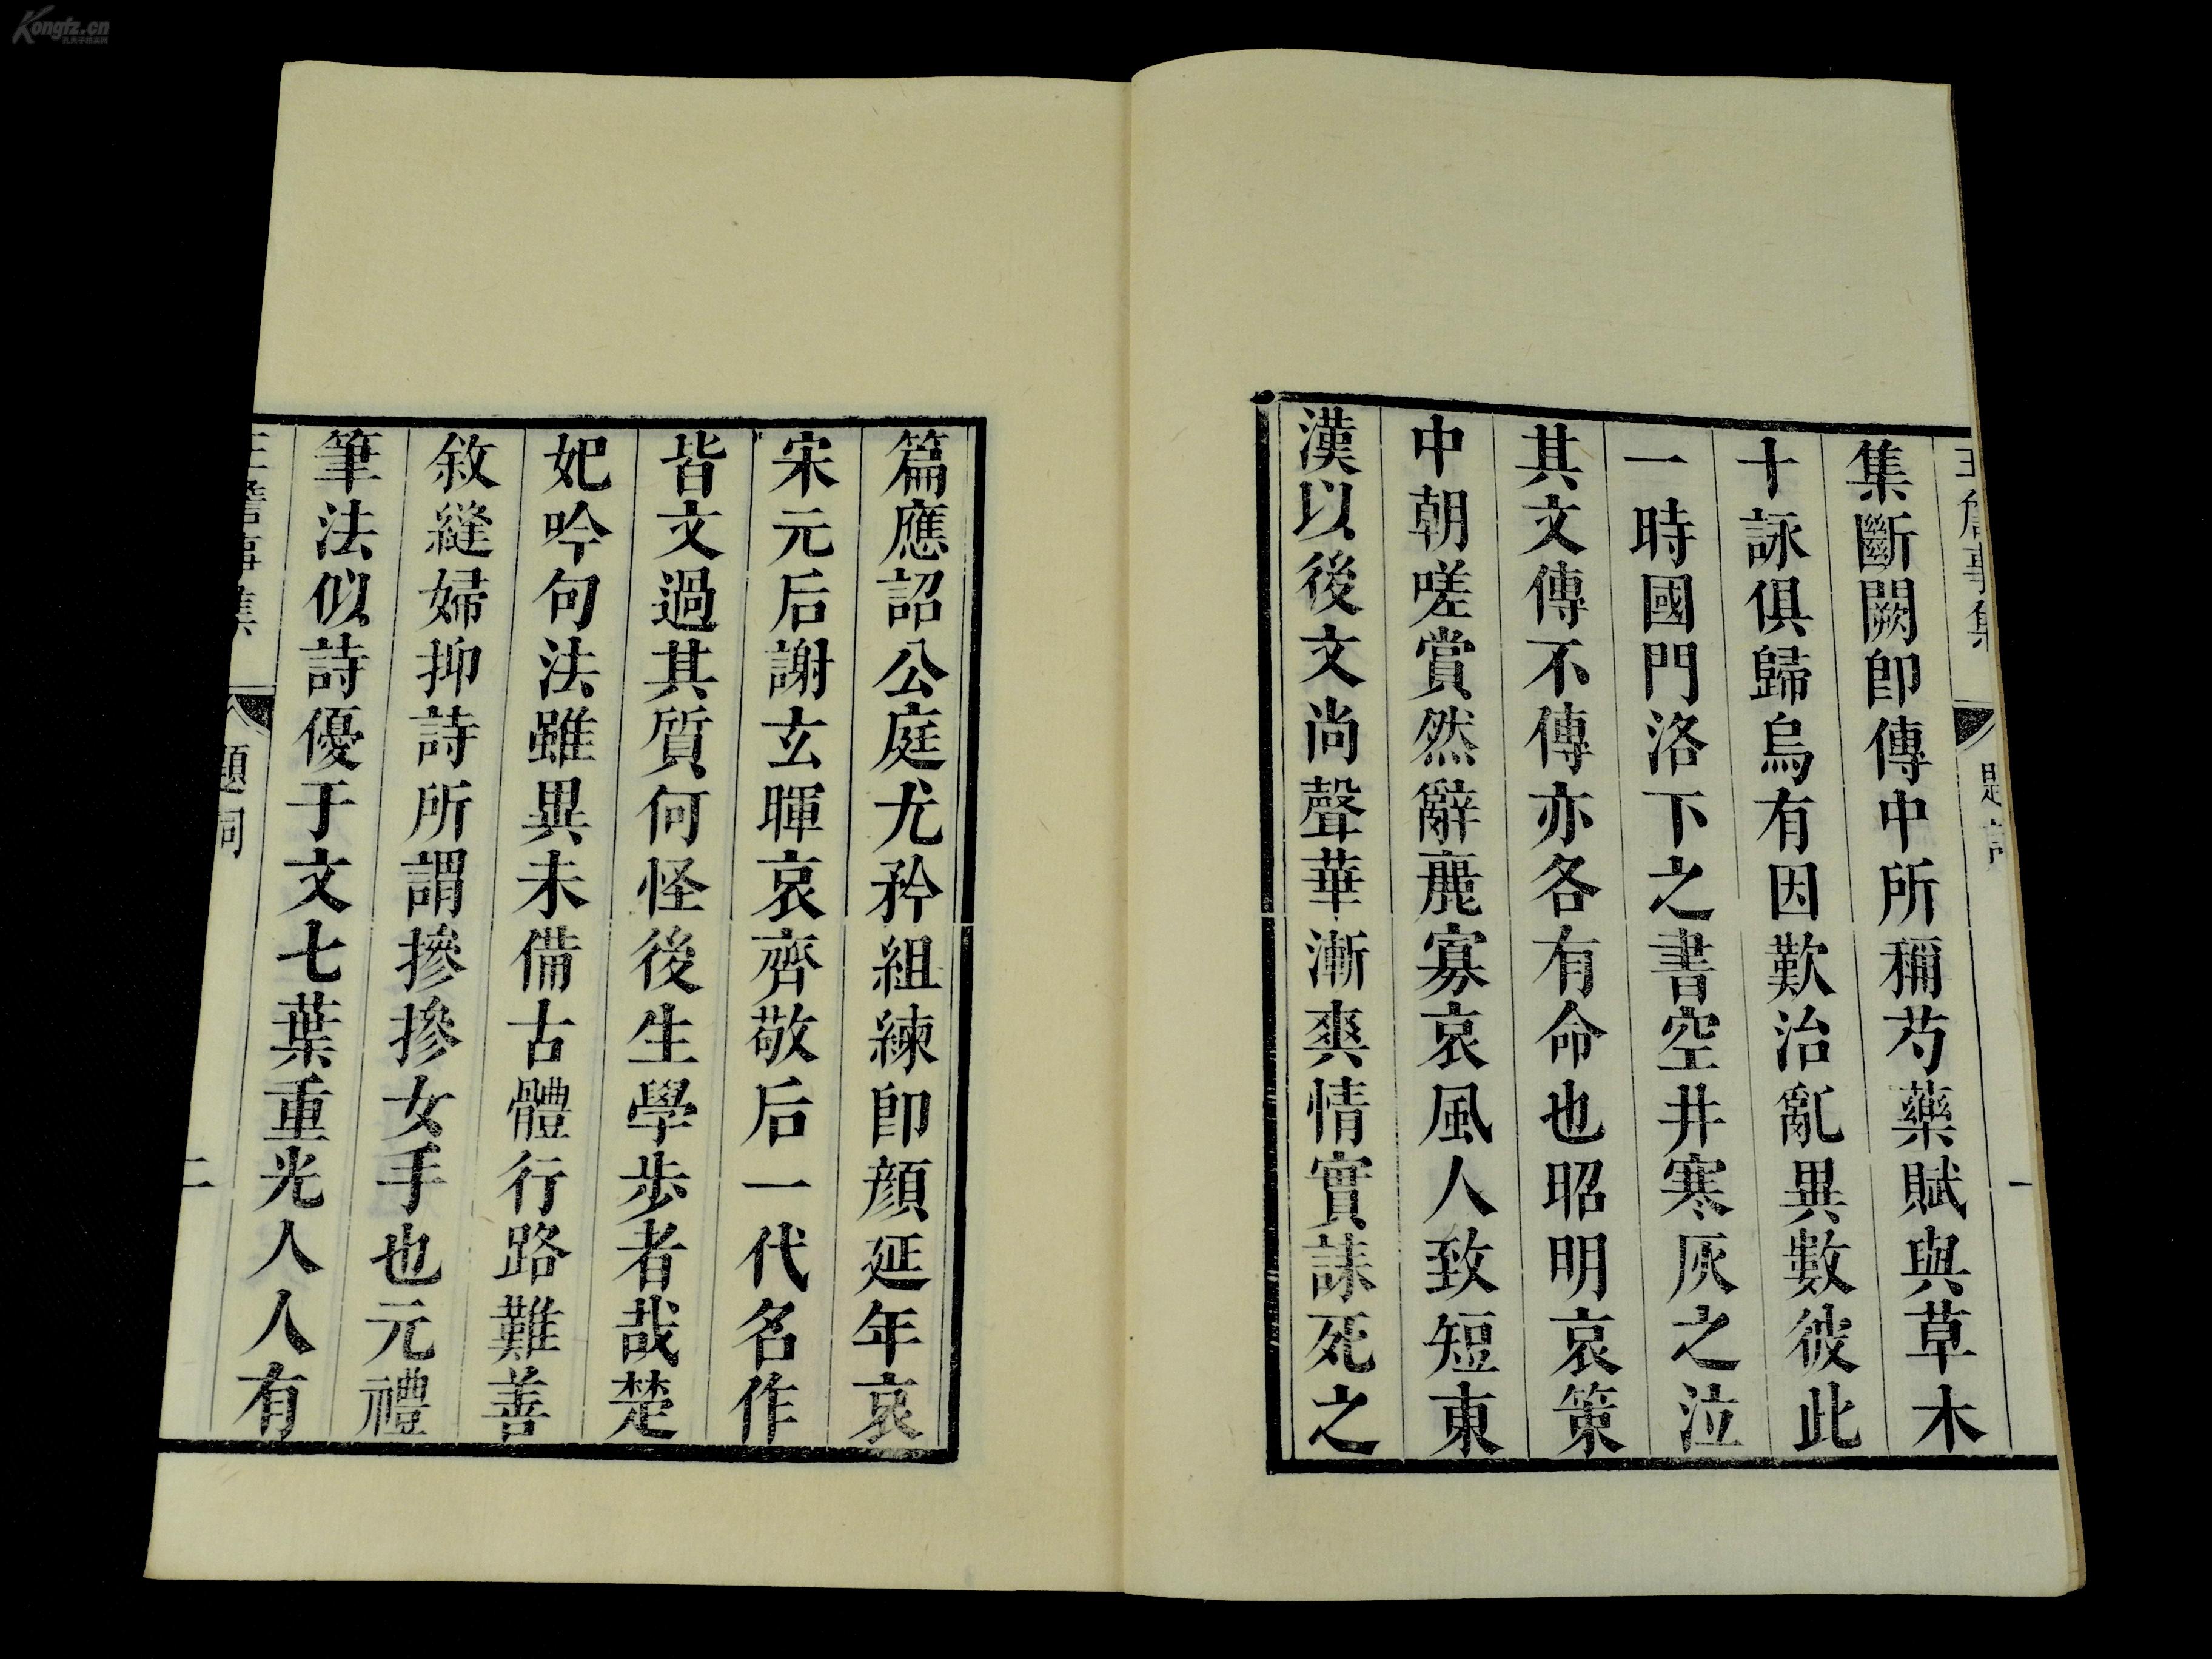 Kongfz.cn
孔夫子旧书网
集斷闕卽傳中所稱芍藥賦與草木
十詠俱歸烏有因歎治亂異數彼此
一時國門洛下之書空井寒灰之泣
其文傳不傳亦各有命也昭明哀策
中朝嗟賞然辭麗寡哀風人致短東
漢以後文尚聲華漸爽情實誄死之
題詞
一
篇應詔公庭尤矜組練卽顏延年哀
宋元后謝玄暉哀齊敬后一代名作
皆文過其質何怪後生學步者哉楚
妃吟句法雖異未備古體行路難善
敘縫婦抑詩所謂摻摻女手也元禮
筆法似詩優于文七葉重光人人有
王詹事集
題詞
二